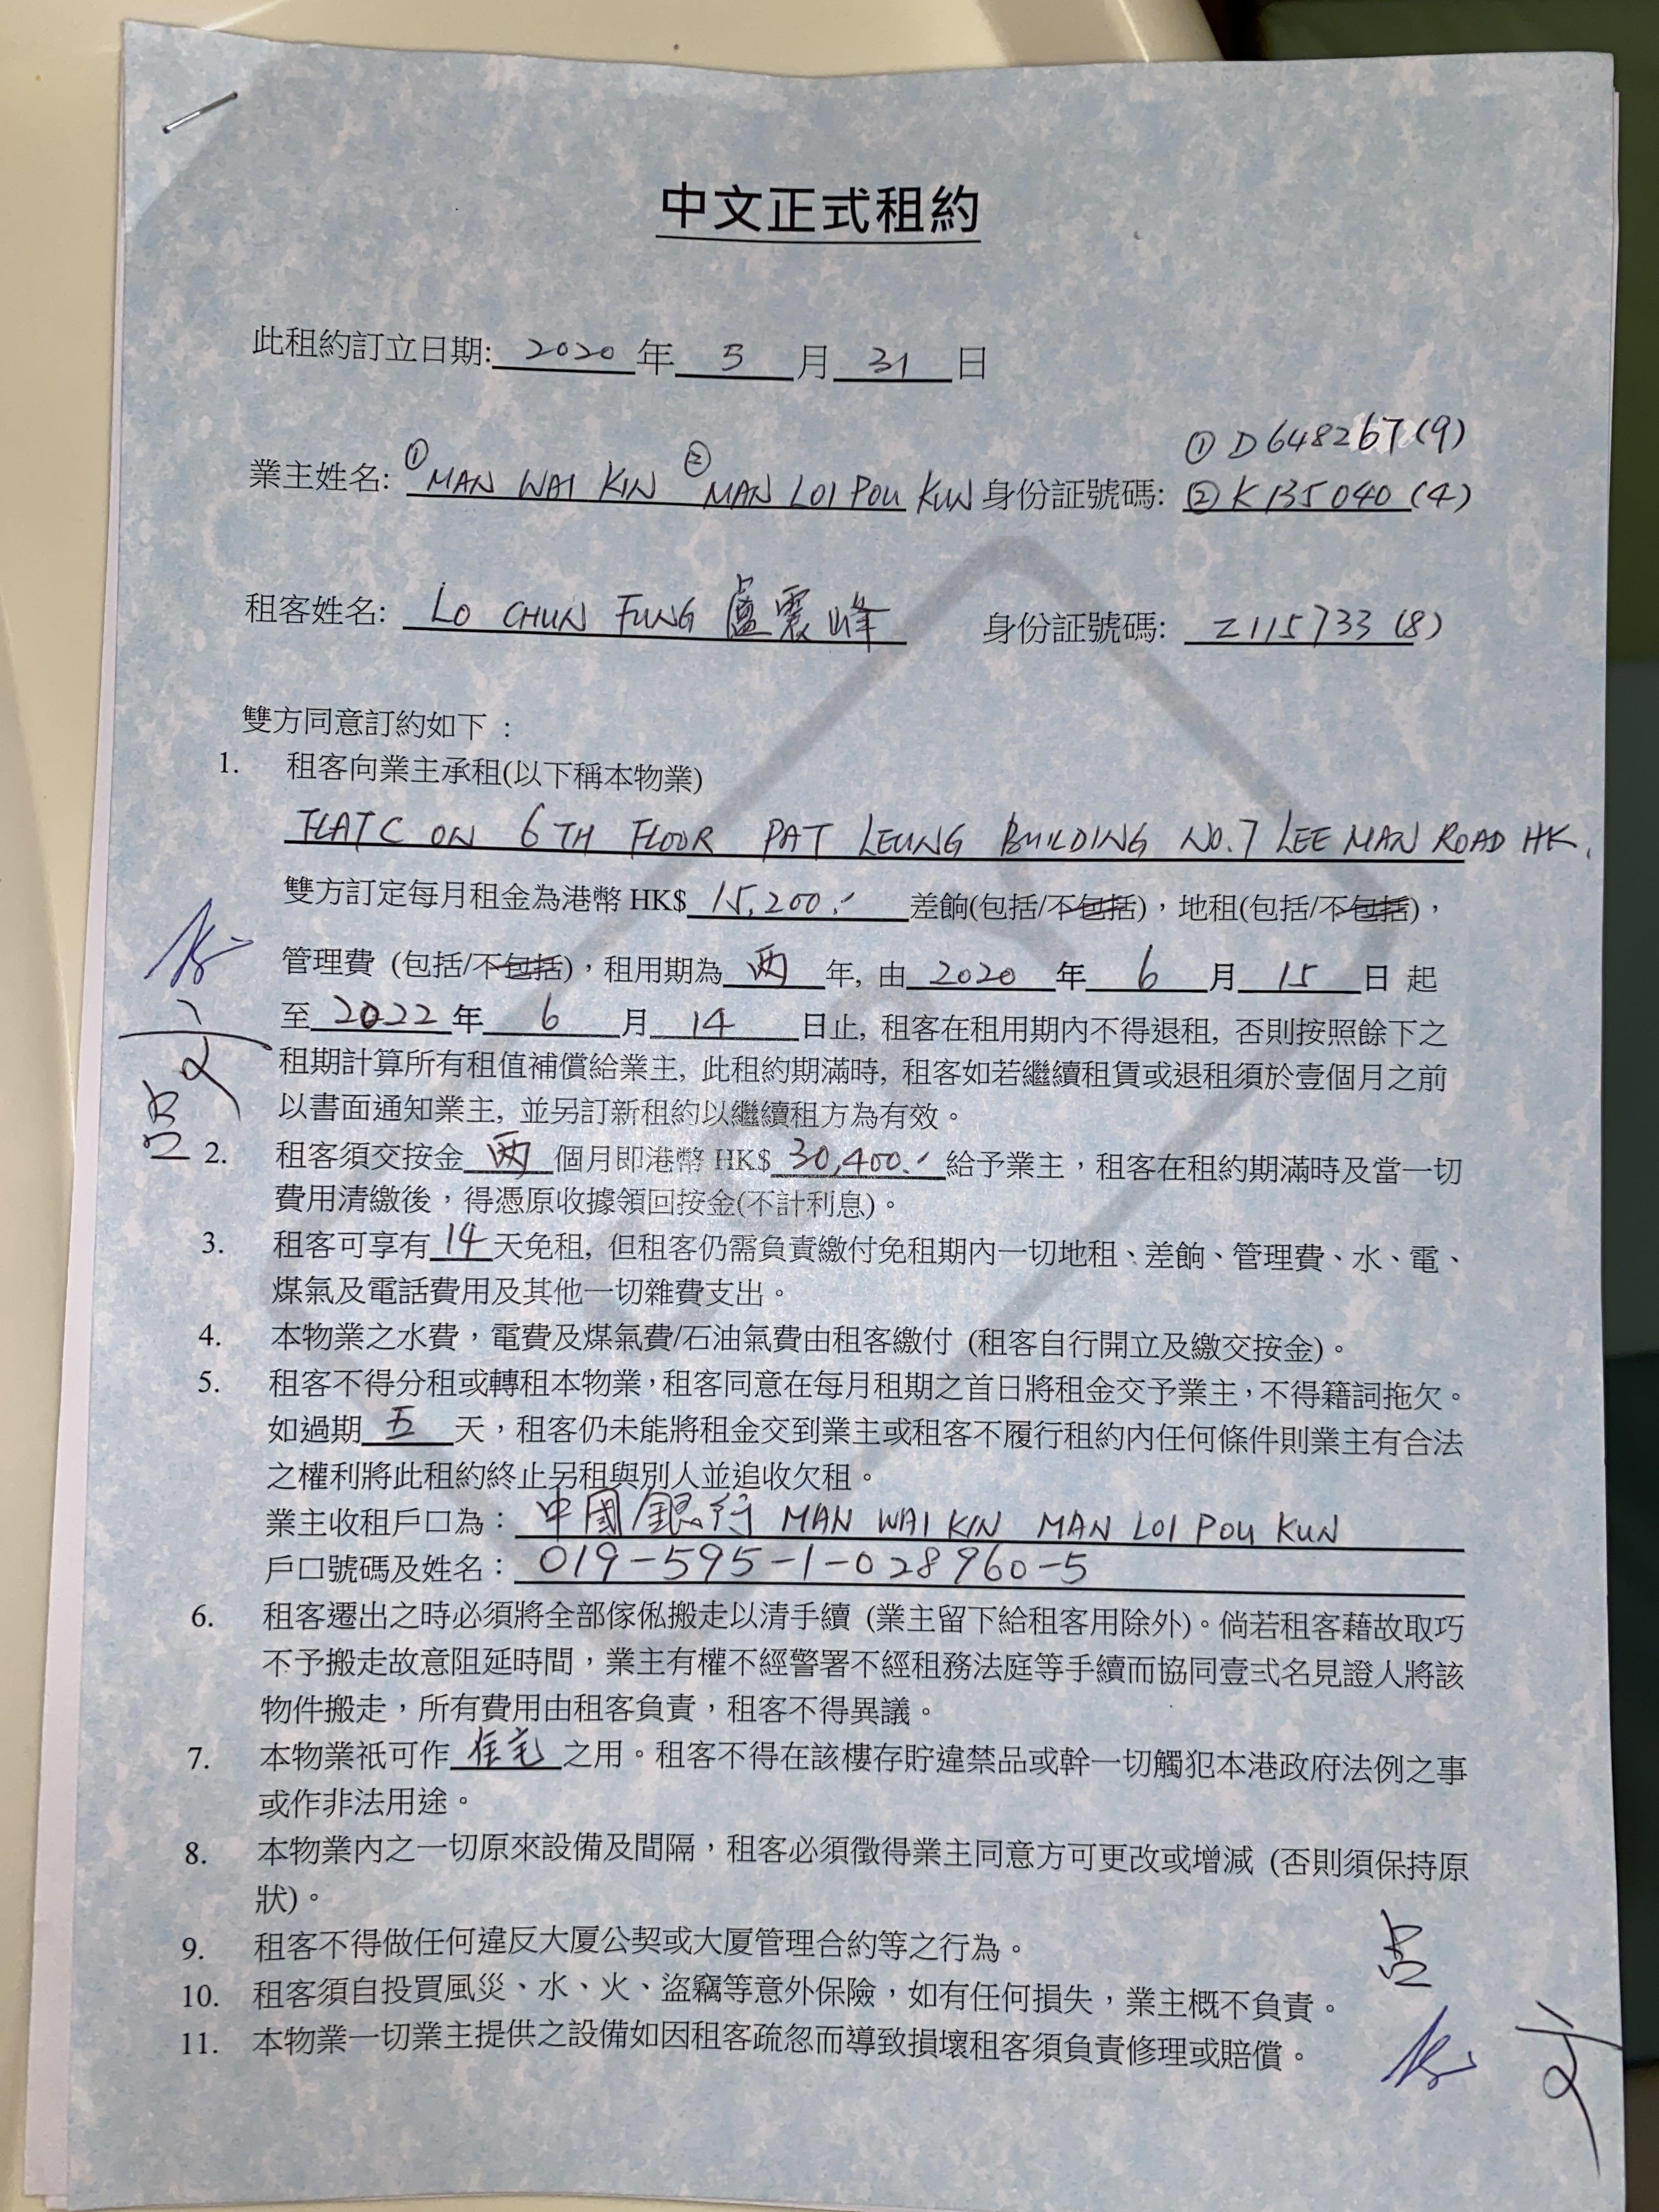 中文正式租約
此租約訂立日期: 2020 年 5 月 31 日
① D648267(9)
業主姓名: ①MAN WAI KIN ②MAN LOI POU KUN 身份証號碼: ②K135040(4)
租客姓名: LO CHUN FUNG 盧震峰 身份証號碼: Z115733(8)
雙方同意訂約如下：
1. 租客向業主承租(以下稱本物業)
FLAT C ON 6TH FLOOR PAT LEUNG BUILDING NO.7 LEE MAN ROAD HK.
雙方訂定每月租金為港幣 HK$ 15,200.- 差餉(包括/不包括)，地租(包括/不包括)，
管理費 (包括/不包括)，租用期為 两 年, 由 2020 年 6 月 15 日 起
至 2022 年 6 月 14 日止, 租客在租用期內不得退租, 否則按照餘下之
租期計算所有租值補償給業主, 此租約期滿時, 租客如若繼續租賃或退租須於壹個月之前
以書面通知業主, 並另訂新租約以繼續租方為有效。
2. 租客須交按金 两 個月即港幣 HK$ 30,400.- 給予業主，租客在租約期滿時及當一切
費用清繳後，得憑原收據領回按金(不計利息)。
3. 租客可享有 14 天免租, 但租客仍需負責繳付免租期內一切地租、差餉、管理費、水、電、
煤氣及電話費用及其他一切雜費支出。
4. 本物業之水費，電費及煤氣費/石油氣費由租客繳付 (租客自行開立及繳交按金)。
5. 租客不得分租或轉租本物業，租客同意在每月租期之首日將租金交予業主，不得籍詞拖欠。
如過期 五 天，租客仍未能將租金交到業主或租客不履行租約內任何條件則業主有合法
之權利將此租約終止另租與別人並追收欠租。
業主收租戶口為： 中國銀行 MAN WAI KIN MAN LOI POU KUN
戶口號碼及姓名： 019-595-1-028960-5
6. 租客遷出之時必須將全部傢俬搬走以清手續 (業主留下給租客用除外)。倘若租客藉故取巧
不予搬走故意阻延時間，業主有權不經警署不經租務法庭等手續而協同壹弍名見證人將該
物件搬走，所有費用由租客負責，租客不得異議。
7. 本物業祇可作 住宅 之用。租客不得在該樓存貯違禁品或幹一切觸犯本港政府法例之事
或作非法用途。
8. 本物業內之一切原來設備及間隔，租客必須徵得業主同意方可更改或增減 (否則須保持原
狀)。
9. 租客不得做任何違反大厦公契或大厦管理合約等之行為。
10. 租客須自投買風災、水、火、盜竊等意外保險，如有任何損失，業主概不負責。
11. 本物業一切業主提供之設備如因租客疏忽而導致損壞租客須負責修理或賠償。